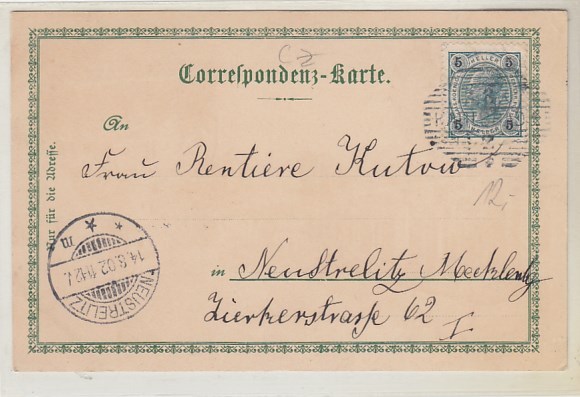 C Z
Correspondenz-Karte.
5 HELLER 5
5 5
An
Frau Rentiere Kutow
Nur für die Adresse.
12,-
NEUSTRELITZ
14.8.02. 11-12V.
* * m
in Neustrelitz Mecklenbg
Zierkerstrasse 62 I